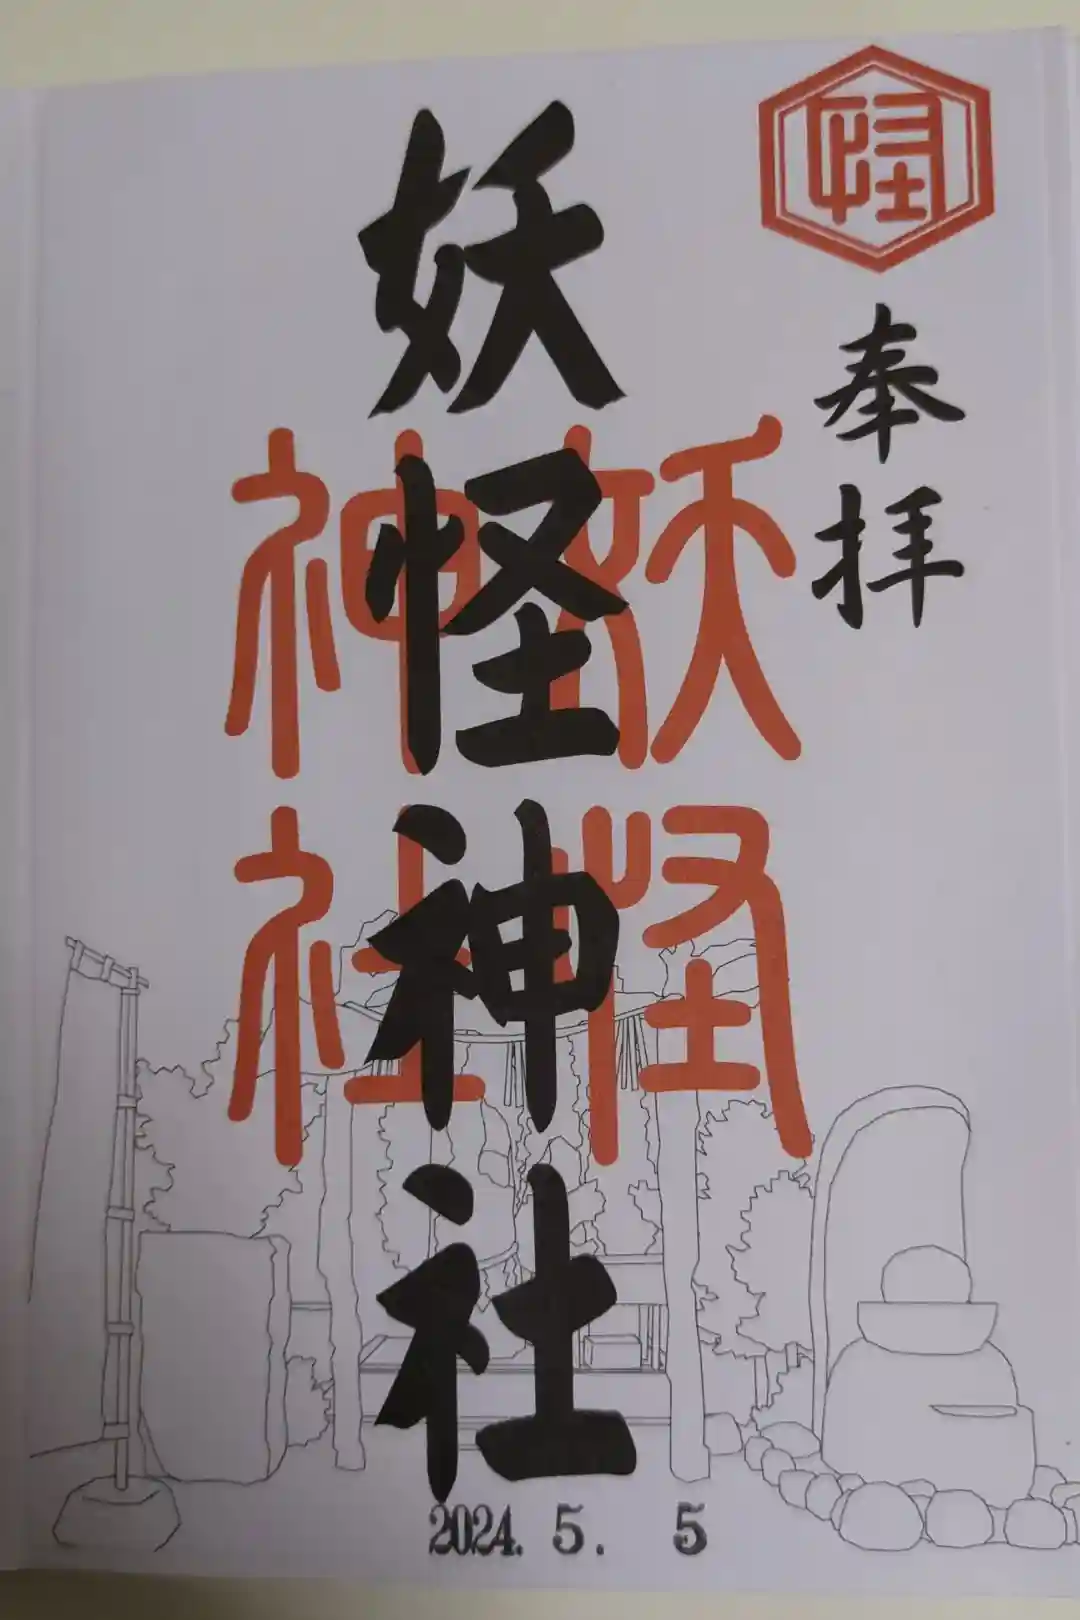 怪
奉拝
妖怪神社
妖怪
神社
2024. 5. 5